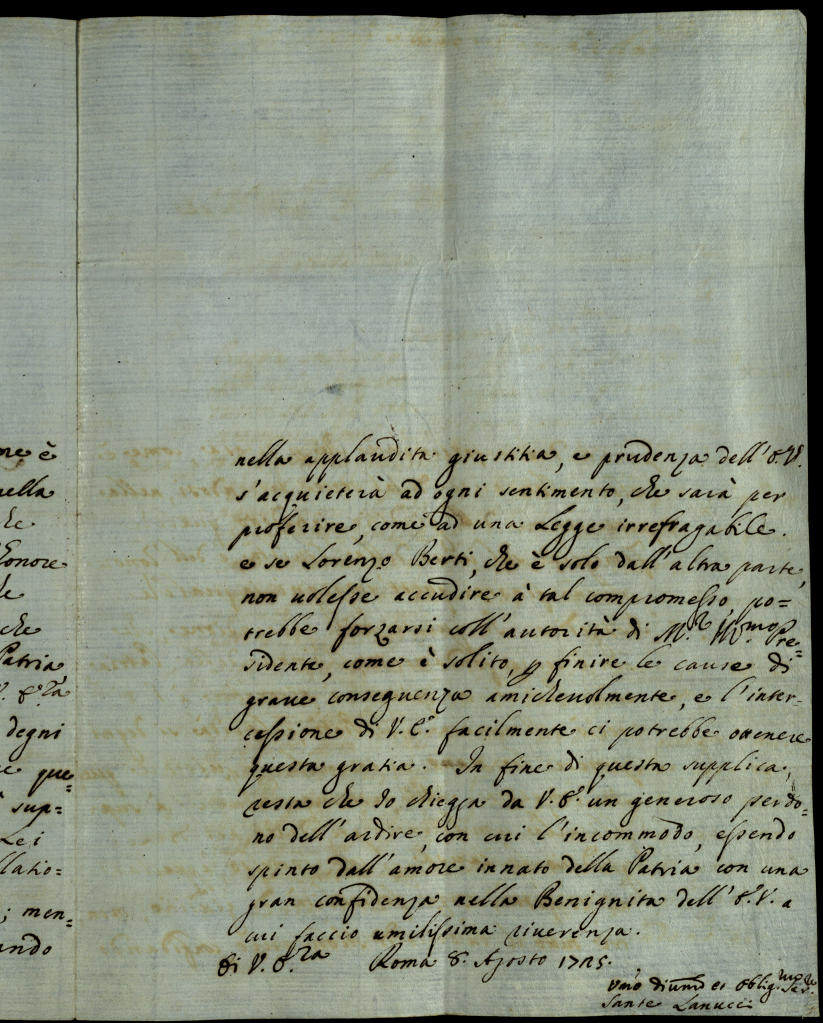 ne è
nella
che
honore
le
che
Patria
V. E.ra
degni
que
sup=
Lei
llatio=
; men=
ando
nella applaudita giustitia, e prudenza dell'E.V.
s'acquieterà ad ogni sentimento, che sarà per
profferire, come ad una Legge irrefragabile.
e se Lorenzo Berti, che è solo dall'altra parte,
non uolesse accudire à tal compromesso, po=
trebbe forzarsi coll'autorità di M.r Ill.mo Pre=
sidente, come è solito, p finire le cause di
graue conseguenza amicheuolmente, e l'inter=
cessione di V.E. facilmente ci potrebbe ottenere
questa gratia. In fine di questa supplica,
resta che Io chiegga da V.E. un generoso perdo=
no dell'ardire, con cui l'incommodo, essendo
spinto dall'amore innato della Patria con una
gran confidenza nella Benignita dell'E.V. a
cui faccio umilissima riuerenza.
di V.E.ra Roma 8. Agosto 1725.
Vmo diumo et Oblig.mo Se.r
Sante Lanucci